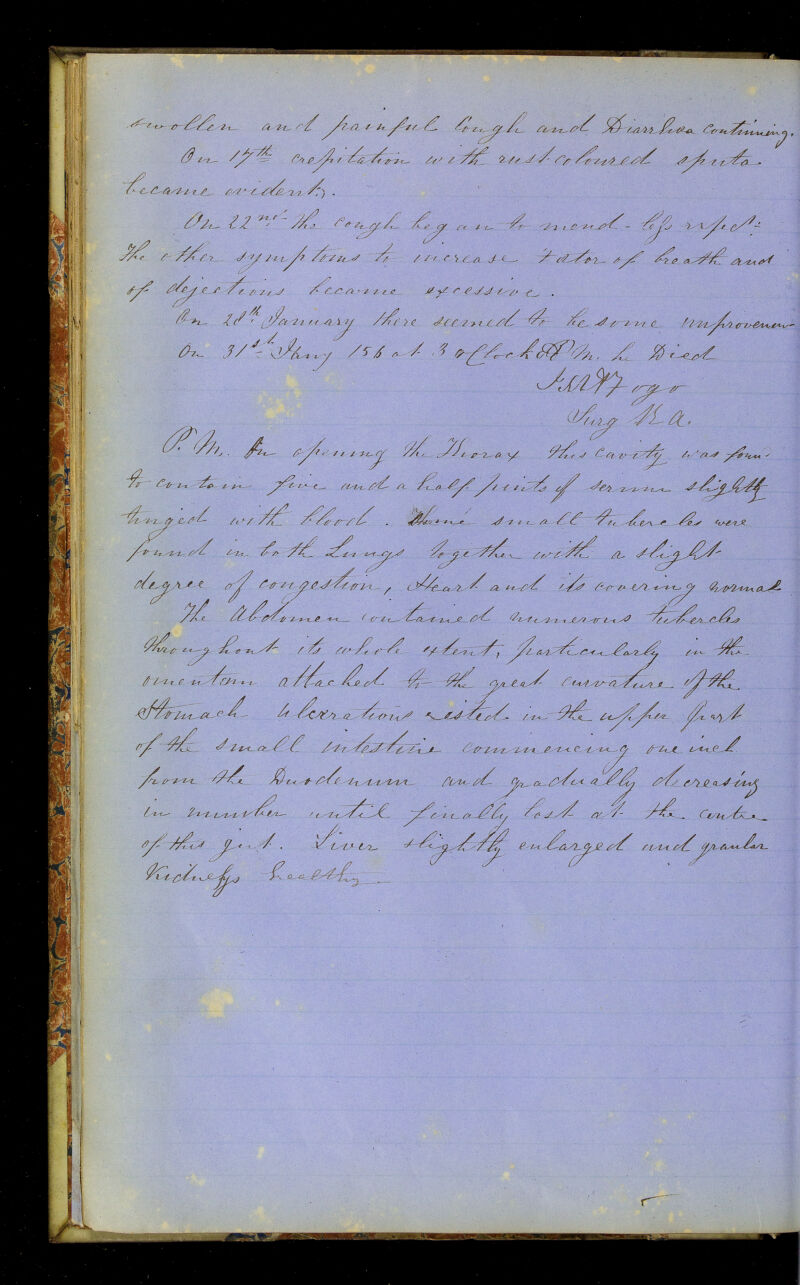 swollen and painful Cough and Diarrhoea continuing.
On 17th crepitation with rust coloured sputa
became evident.
On 22nd the cough began to mend - less
The other symptoms to increase Fœtor of breath and
of dejections became excessive.
On 28th January there seemed to be some improvemen
On 31st Jany 156 at 3 oClock P M. he Died
Fogo
Surg R A.
P. M. On opening the Thorax this cavity was foun
to contain five and a half pints of serum slightly
tinged with blood. Some small tubercles were
found in both Lungs together with a slight
degree of congestion, Heart and its covering normal
The Abdomen contained numerous tubercles
throughout its whole extent, particularly in the
omentum attached to the great curvature of the
Stomach Ulcerations existed in the upper part
of the small intestine commencing one inch
from the Duodenum and gradually decreasing
in number until finally lost at the centre
of this gut. Liver slightly enlarged and granlar
Kidneys healthy